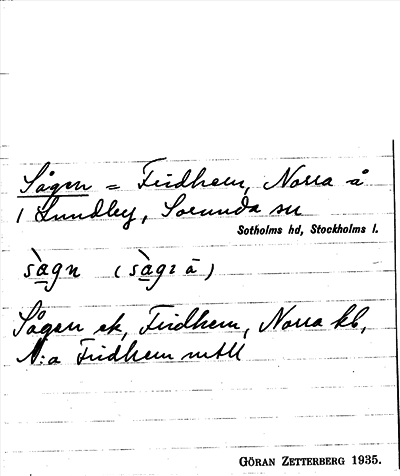 Sågen = Fridhem, Norra å
1 Lundby, Sorunda sn
Sotholms hd, Stockholms l.
sàgn (sàgz å)
Sågen ek, Fridhem, Norra kb,
N:a Fridhem mtll
GÖRAN ZETTERBERG 1935.